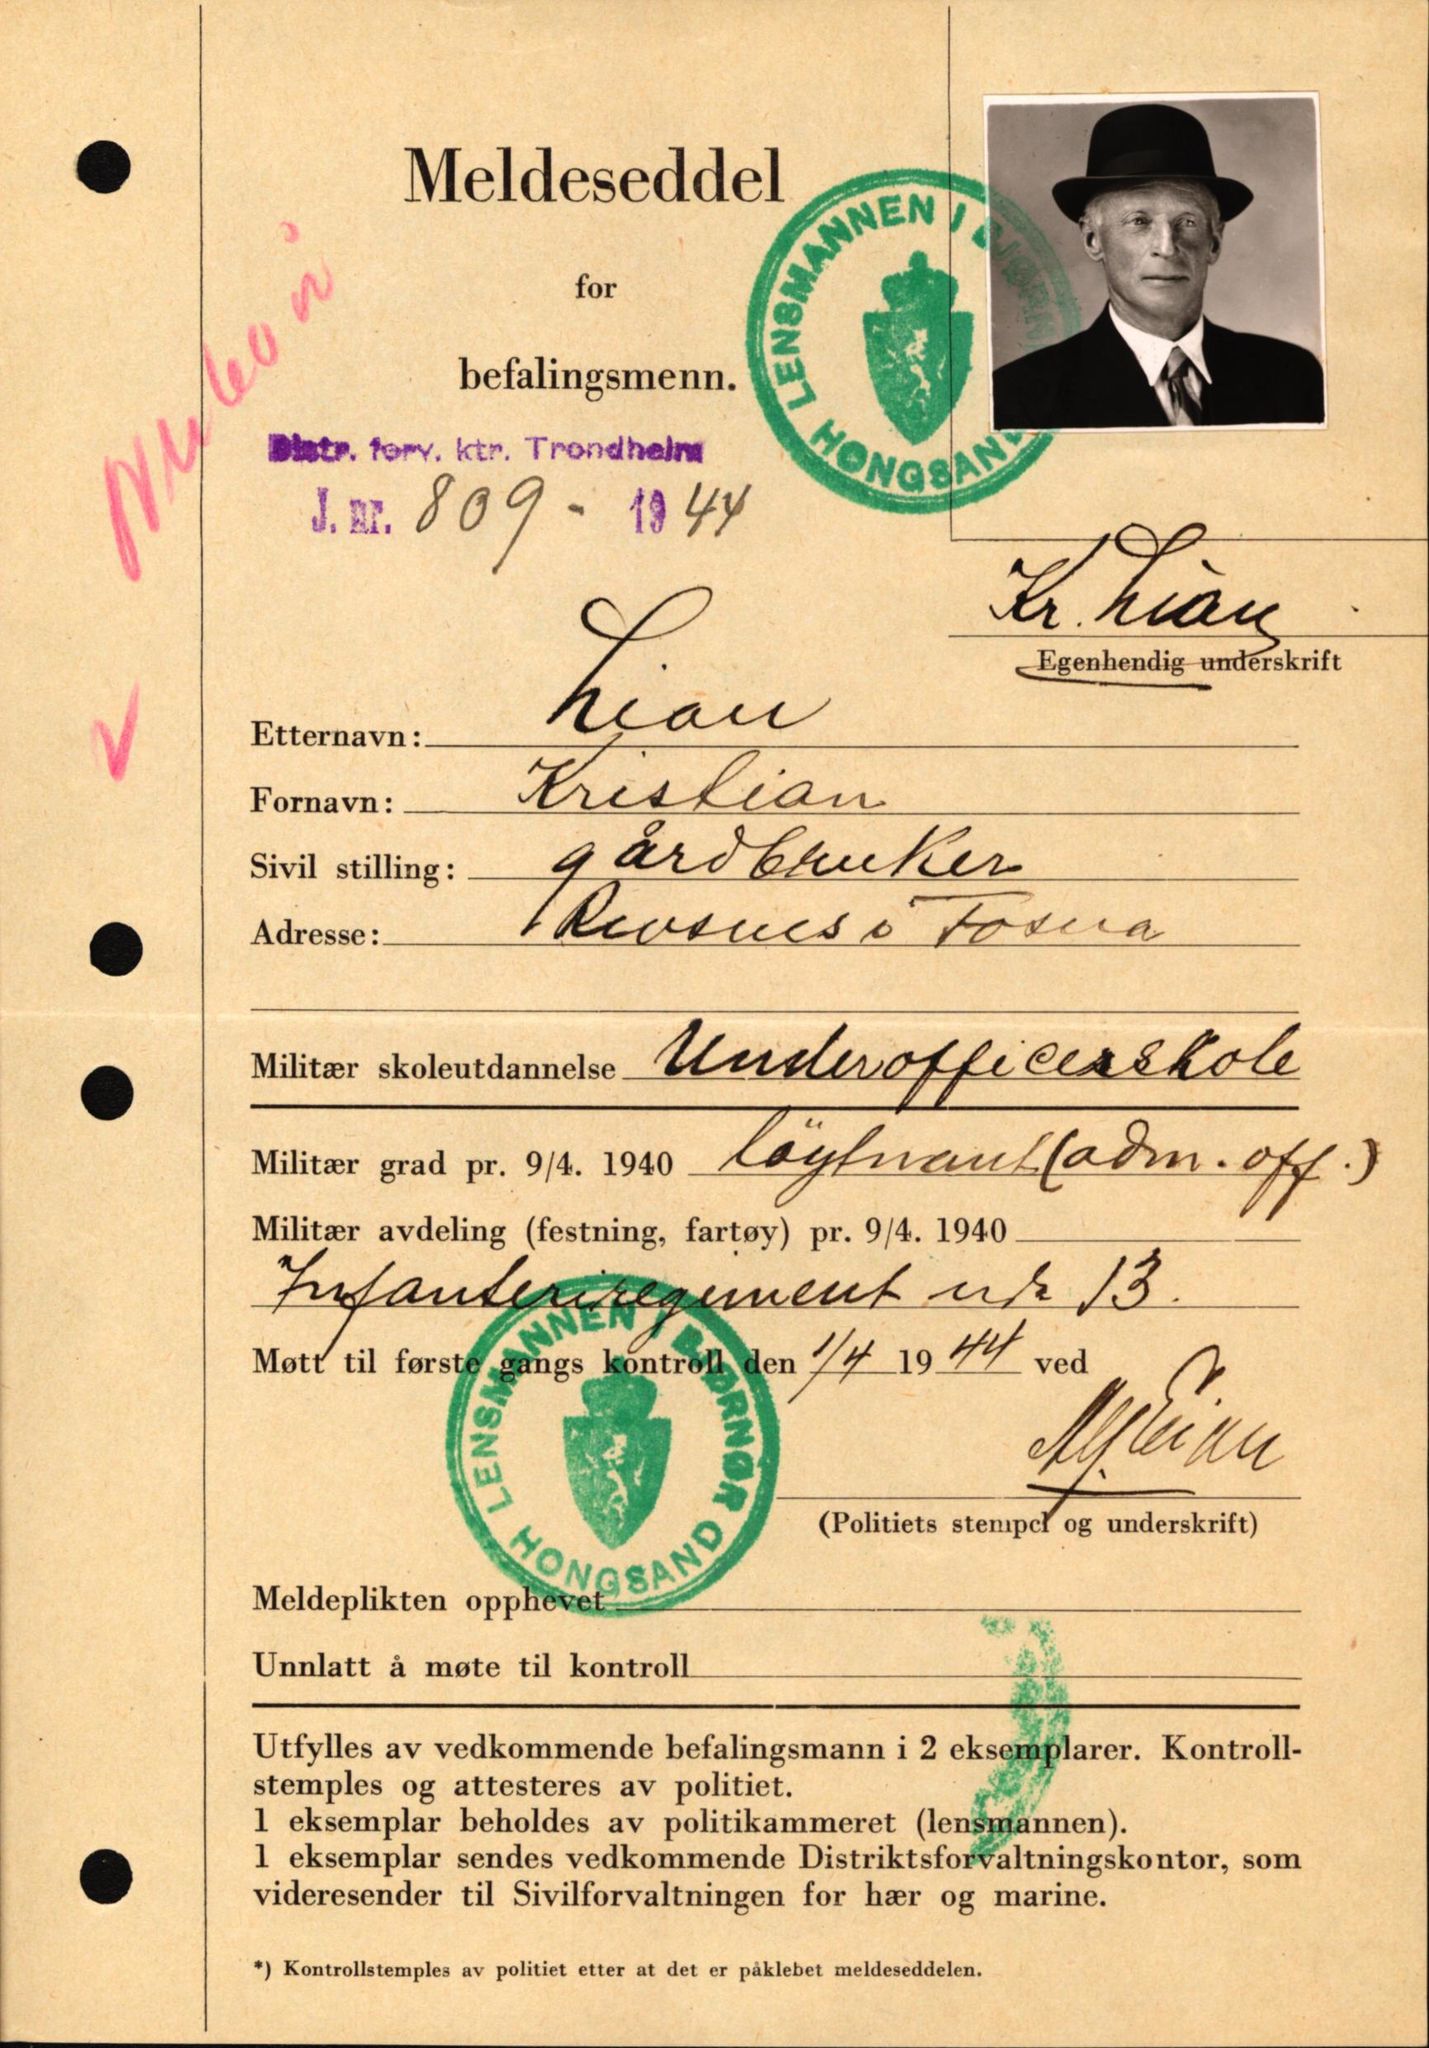 Meldeseddel
for
befalingsmenn.
LENSMANNEN I BJØRN
HONGSAND
Distr. forv. ktr. Trondheim
J. nr. 809 - 1944
Kr. Lian
Egenhendig underskrift
Etternavn: Lian
Fornavn: Kristian
Sivil stilling: gårdbruker
Adresse: Revsnes i Fosna
Militær skoleutdannelse Underofficersskole
Militær grad pr. 9/4. 1940 löytnant (adm. off.)
Militær avdeling (festning, fartøy) pr. 9/4. 1940
Infanteriregiment nr 13.
Møtt til første gangs kontroll den 1/4 1944 ved
LENSMANNEN I BJØRNØR
HONGSAND
(Politiets stempel og underskrift)
Meldeplikten opphevet
Unnlatt å møte til kontroll
Utfylles av vedkommende befalingsmann i 2 eksemplarer. Kontroll-
stemples og attesteres av politiet.
1 eksemplar beholdes av politikammeret (lensmannen).
1 eksemplar sendes vedkommende Distriktsforvaltningskontor, som
videresender til Sivilforvaltningen for hær og marine.
*) Kontrollstemples av politiet etter at det er påklebet meldeseddelen.